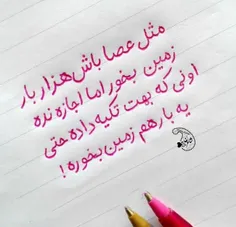 مثل عصا باش هزار بار
زمین بخور اما اجازه نده
اونی که بهت تکیه داده حتی
یه بار هم زمین بخوره!